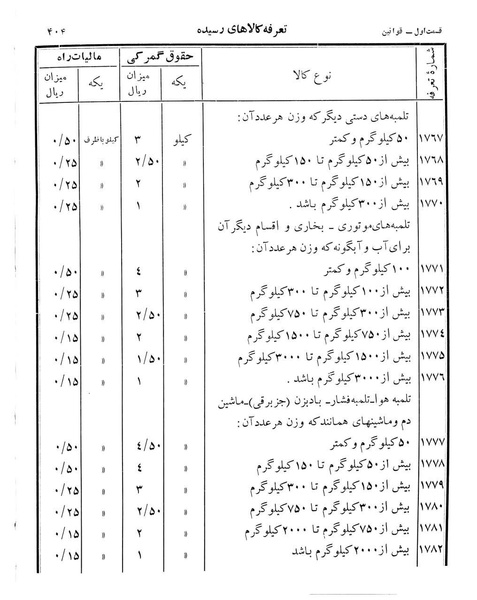 قسمت اول ـ قوانین تعرفه کالاهای رسیده ۴۰۴
شمارهٔ تعرفه نوع کالا حقوق گمرکی مالیات راه
یکه میزان ریال یکه میزان ریال
تلمبه‌های دستی دیگر که وزن هر عدد آن:
۱۷۶۷ ۵۰ کیلوگرم و کمتر کیلو ۳ کیلو با ظرف ۰/۵۰
۱۷۶۸ بیش از ۵۰ کیلوگرم تا ۱۵۰ کیلوگرم » ۲/۵۰ » ۰/۲۵
۱۷۶۹ بیش از ۱۵۰ کیلوگرم تا ۳۰۰ کیلوگرم » ۲ » ۰/۲۵
۱۷۷۰ بیش از ۳۰۰ کیلوگرم باشد . » ۱ » ۰/۲۵
تلمبه‌های موتوری ـ بخاری و اقسام دیگر آن
برای آب و آبگونه که وزن هر عدد آن:
۱۷۷۱ ۱۰۰ کیلوگرم و کمتر » ٤ » ۰/۵۰
۱۷۷۲ بیش از ۱۰۰ کیلوگرم تا ۳۰۰ کیلوگرم » ۳ » ۰/۲۵
۱۷۷۳ بیش از ۳۰۰ کیلوگرم تا ۷۵۰ کیلوگرم » ۲/۵۰ » ۰/۲۵
۱۷۷٤ بیش از ۷۵۰ کیلوگرم تا ۱۵۰۰ کیلوگرم » ۲ » ۰/۱۵
۱۷۷۵ بیش از ۱۵۰۰ کیلوگرم تا ۳۰۰۰ کیلوگرم » ۱/۵۰ » ۰/۱۵
۱۷۷۶ بیش از ۳۰۰۰ کیلوگرم باشد . » ۱ » ۰/۱۵
تلمبه هوا ـ تلمبه فشار ـ بادبزن (جز برقی) ـ ماشین
دم و ماشینهای همانند که وزن هر عدد آن:
۱۷۷۷ ۵۰ کیلوگرم و کمتر » ٤/۵۰ » ۰/۵۰
۱۷۷۸ بیش از ۵۰ کیلوگرم تا ۱۵۰ کیلوگرم » ٤ » ۰/۵۰
۱۷۷۹ بیش از ۱۵۰ کیلوگرم تا ۳۰۰ کیلوگرم » ۳ » ۰/۲۵
۱۷۸۰ بیش از ۳۰۰ کیلوگرم تا ۷۵۰ کیلوگرم » ۲/۵۰ » ۰/۲۵
۱۷۸۱ بیش از ۷۵۰ کیلوگرم تا ۲۰۰۰ کیلوگرم » ۲ » ۰/۱۵
۱۷۸۲ بیش از ۲۰۰۰ کیلوگرم باشد » ۱ » ۰/۱۵